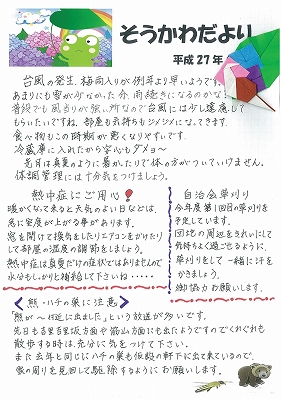 そうかわだより
平成27年
台風の発生、梅雨入りが例年より早いようです。
あまりにも雪が少なかった分、雨続きになるのかな?
普段でも風当りが強い所なので台風には少し遠慮して
もらいたいですね。部屋も気持ちもジメジメになってきます。
食べ物もこの時期が悪くなりやすいです。
冷蔵庫に入れたから安心もダメヨ〜
先月は真夏のように暑かったりで体の方がついていけません。
体調管理には十分気をつけましょう。
熱中症にご用心!
暖かくなって来ると天気のよい日などは、
急に室度が上がる事があります。
窓を開けて換気をしたりエアコンをかけたり
して部屋の温度の調節をしましょう。
熱中症は真夏だけの症状ではありませんので
水分もしっかりと補給して下さいね・・・・・
自治会草刈り
今年度第1回目の草刈りを
予定しています。
団地の周辺をきれいにして
気持ちよく過ごせるように、
草刈りをして一緒に汗を
かきましょう。
御協力お願いします。
<熊・ハチの巣に注意>
「熊が〜付近に出ました」という放送が多いです。
先日も名里百里坂方面や館山方面にも出たようですのでくれぐれも
散歩する時は、充分に気をつけて下さい。
また去年と同じにハチの巣も仮設の軒下に出て来ているので、
家の周りを見回して駆除するようにお願いします。